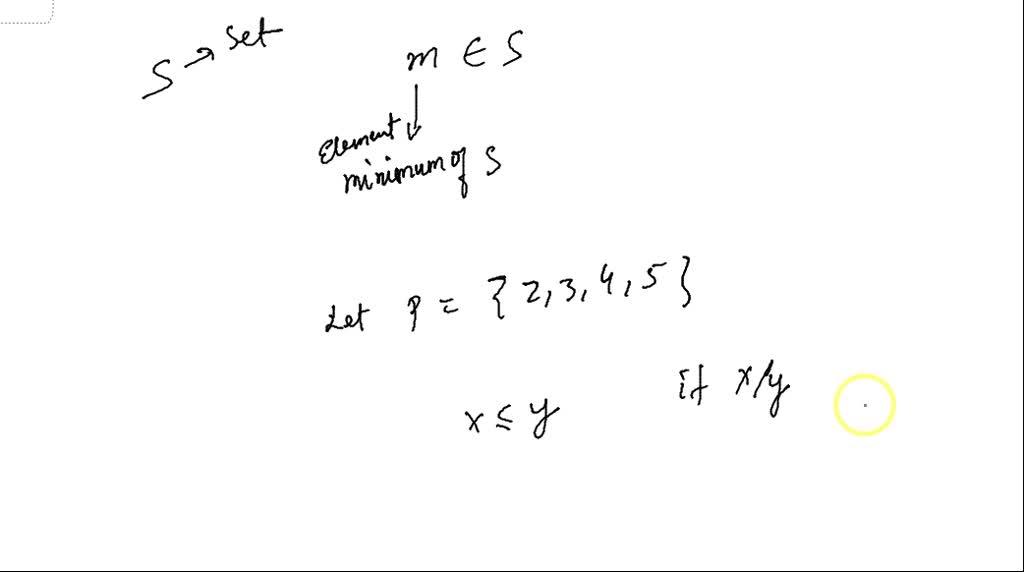 S → Set
m ∈ S
Element
minimum of S
Let P = {2,3,4,5}
x ≤ y if x/y